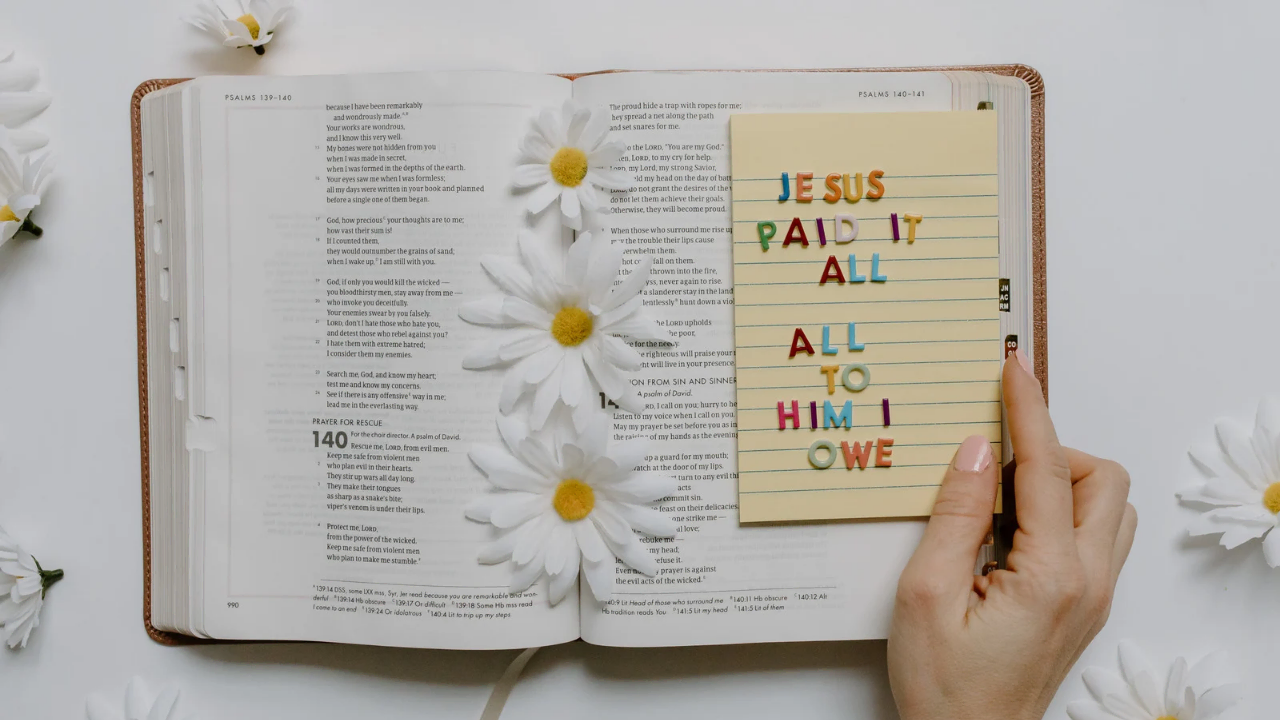 PSALMS 139–140
because I have been remarkably
and wondrously made.
Your works are wondrous,
and I know this very well.
My bones were not hidden from you
when I was made in secret,
when I was formed in the depths of the earth.
Your eyes saw me when I was formless;
all my days were written in your book and planned
before a single one of them began.
God, how precious your thoughts are to me;
how vast their sum is!
If I counted them,
they would outnumber the grains of sand;
when I wake up, I am still with you.
God, if only you would kill the wicked —
you bloodthirsty men, stay away from me —
who invoke you deceitfully.
Your enemies swear by you falsely.
LORD, don't I hate those who hate you,
and detest those who rebel against you?
I hate them with extreme hatred;
I consider them my enemies.
Search me, God, and know my heart;
test me and know my concerns.
See if there is any offensive way in me;
lead me in the everlasting way.
PRAYER FOR RESCUE
140 For the choir director. A psalm of David.
Rescue me, LORD, from evil men.
Keep me safe from violent men
who plan evil in their hearts.
They stir up wars all day long.
They make their tongues
as sharp as a snake's bite;
viper's venom is under their lips.
Protect me, LORD,
from the power of the wicked.
Keep me safe from violent men
who plan to make me stumble.
139:14 DSS, some LXX mss, Syr, Jer read because you are remarkable and won-
derful 139:14 Hb obscure 139:17 Or difficult 139:18 Some Hb mss read
I come to an end 139:24 Or idolatrous 140:4 Lit to trip up my steps
990
PSALMS 140–141
The proud hide a trap with ropes for me;
hey spread a net along the path
and set snares for me.
to the LORD, "You are my God."
LORD, to my cry for help.
my Lord, my strong Savior,
my head on the day of
do not grant the desires of the
do not let them achieve their goals.
Otherwise, they will become proud.
When those who surround me rise up
the trouble their lips cause
overwhelm them.
hot fall on them.
thrown into the fire,
never again to rise.
a slanderer stay in the land
hunt down a
the LORD upholds
the poor,
for the needy.
righteous will praise your
will live in your presence.
FROM SIN AND
A psalm of David.
I call on you; hurry to
Listen to my voice when I call on you.
May my prayer be set before you as
the of my hands as the evening
up a guard for my mouth;
watch at the door of my lips.
turn to any
acts
commit sin.
feast on their delicacies.
one strike me —
love;
rebuke me —
my head;
refuse it.
Even my prayer is against
the evil acts of the wicked.
Lit Head of those who surround me 140:11 Hb obscure 140:12
Hb tradition reads You 141:5 Lit my head 141:5 Lit of them
JESUS
PAID IT
ALL
ALL
TO
HIM I
OWE
JN
AC
RM
CO